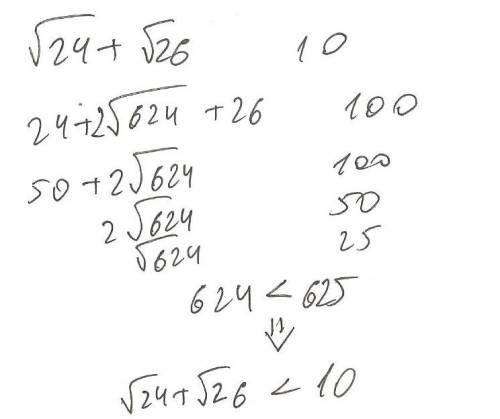 √24 + √26 10
24 + 2√624 + 26 100
50 + 2√624 100
2√624 50
√624 25
624 < 625
⇓
√24 + √26 < 10